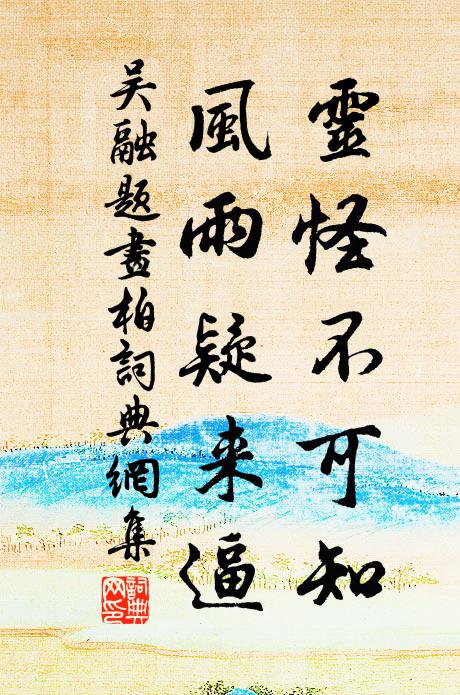 靈怪不可知
風雨疑来逼
吳融題畫柏詞典網集
詞典網印